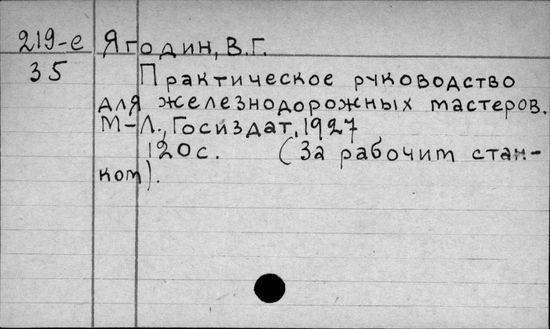 219-е Ягодин, В.Г.
35 Практическое руководство
для железнодорожных мастеров.
М-Л., Госиздат, 1927
120с. (За рабочит стан-
ком).